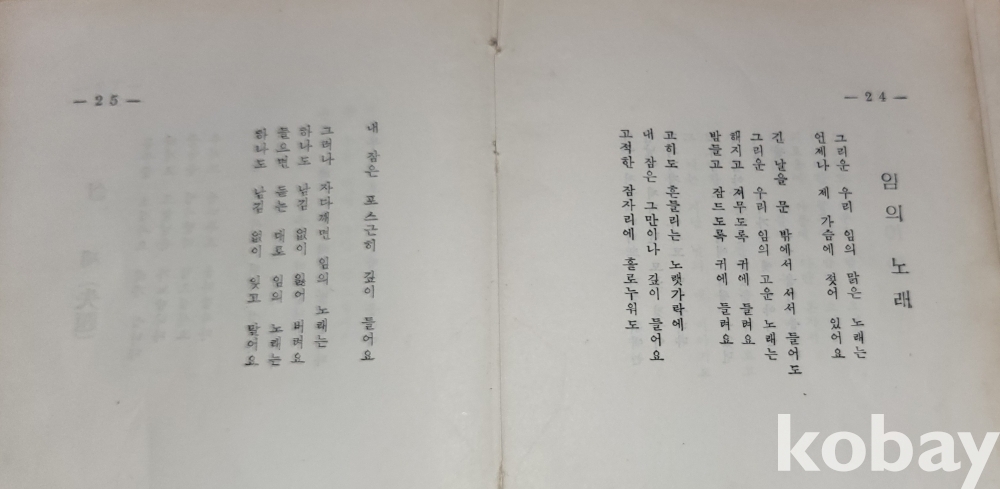 — 24 —
임의 노래
그리운 우리 임의 맑은 노래는
언제나 제 가슴에 젖어 있어요
긴 날을 문 밖에서 서서 들어도
그리운 우리 임의 고운 노래는
해지고 져무도록 귀에 들려요
밤들고 잠드도록 귀에 들려요
고히도 흔들리는 노랫가락에
내 잠은 그만이나 깊이 들어요
고적한 잠자리에 홀로누워도
— 25 —
내 잠은 포스근히 깊이 들어요
그러나 자다깨면 임의 노래는
하나도 남김 없이 잃어 버려요
들으면 듣는 대로 임의 노래는
하나도 남김 없이 잊고 말아요
kobay